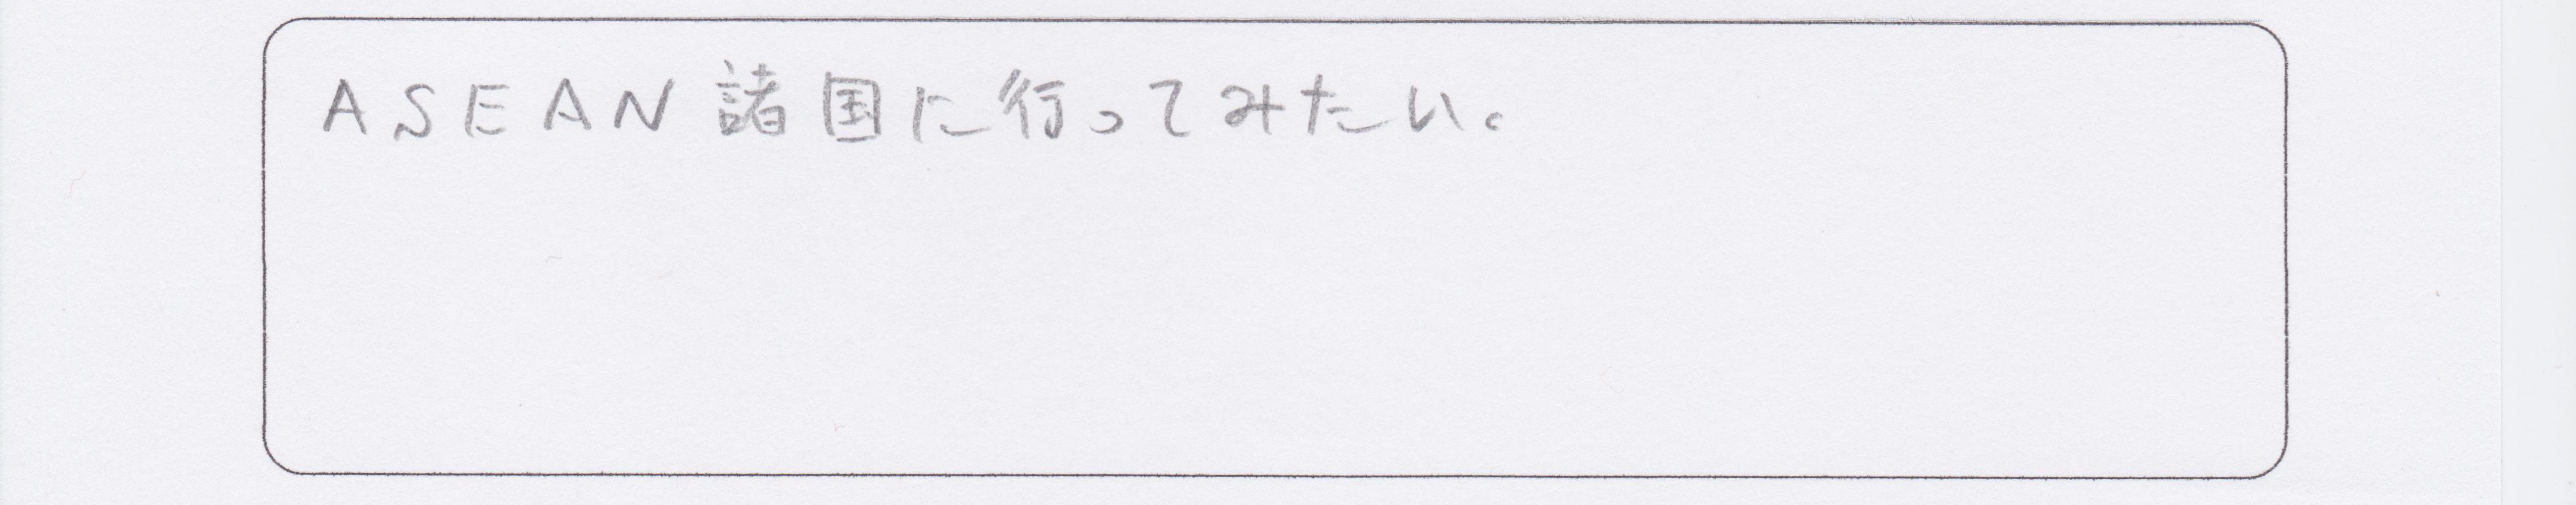 ASEAN諸国に行ってみたい。